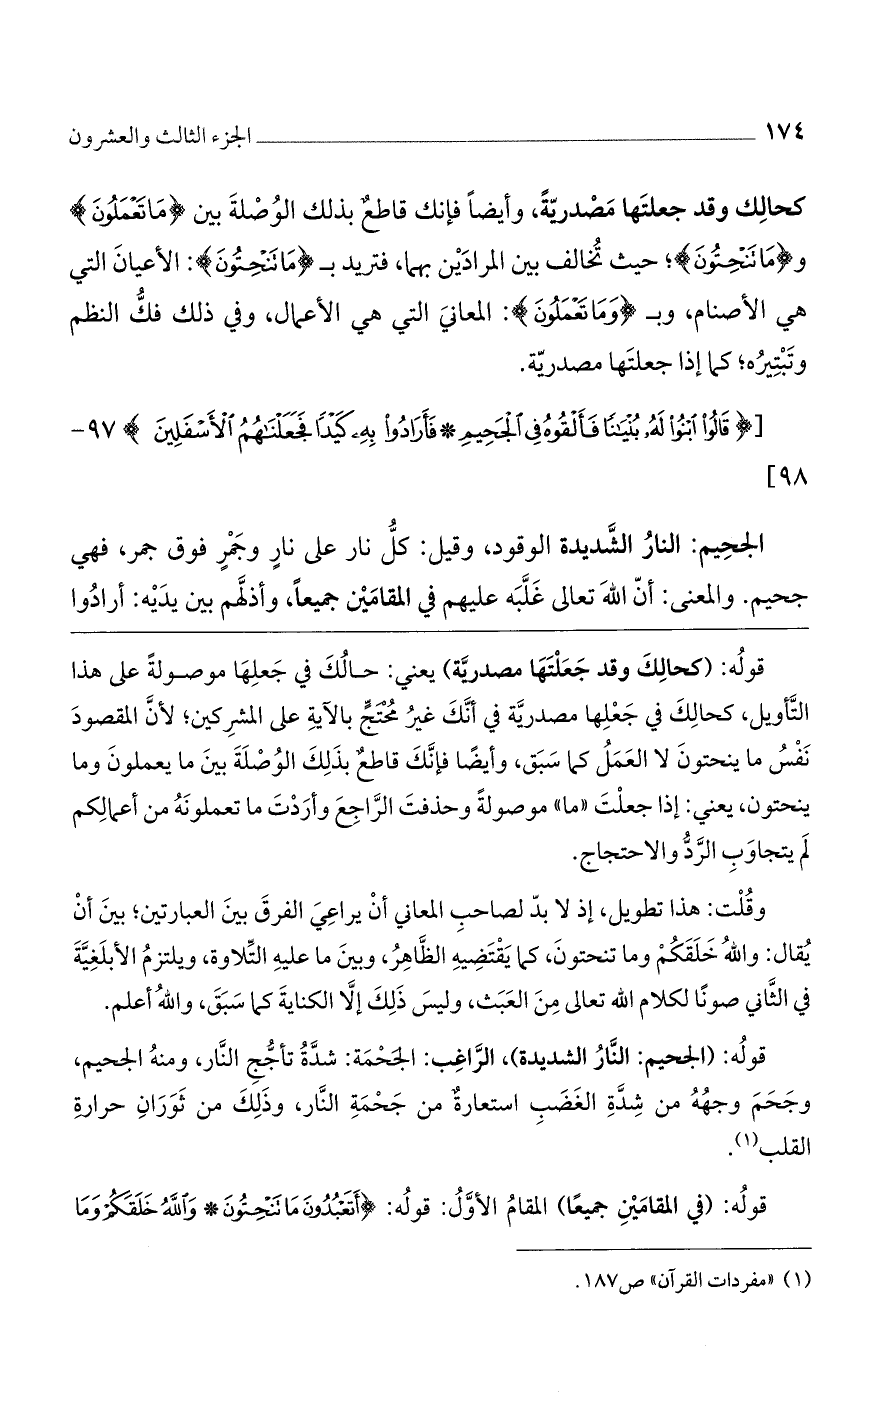 ١٧٤ الجزء الثالث والعشرون
كحالِك وقد جعلتَها مَصْدريّةً، وأيضاً فإنك قاطعٌ بذلك الوُصْلةَ بين ﴿مَا تَعْمَلُونَ﴾
و﴿مَا تَنْحِتُونَ﴾؛ حيث تُخالف بين المرادَيْن بهما، فتريد بـ ﴿مَا تَنْحِتُونَ﴾: الأعيانَ التي
هي الأصنام، وبـ ﴿وَمَا تَعْمَلُونَ﴾: المعانيَ التي هي الأعمال، وفي ذلك فكُّ النظم
وتَبْتِيرُه؛ كما إذا جعلتَها مصدريّة.
[﴿قَالُوا۟ ٱبْنُوا۟ لَهُۥ بُنْيَـٰنًا فَأَلْقُوهُ فِى ٱلْجَحِيمِ * فَأَرَادُوا۟ بِهِۦ كَيْدًا فَجَعَلْنَـٰهُمُ ٱلْأَسْفَلِينَ ﴾ ٩٧-
٩٨]
الجحِيم: النارُ الشَّديدة الوقود، وقيل: كلُّ نار على نارٍ وجَمْرٍ فوق جمر، فهي
جحيم. والمعنى: أنّ اللهَ تعالى غَلَّبَه عليهم في المقامَيْن جميعاً، وأذلَّهم بين يدَيْه: أرادُوا
قولُه: (كحالِكَ وقد جَعَلْتَهَا مصدريَّة) يعني: حالُكَ في جَعلِهَا موصولةً على هذا
التَّأويل، كحالِكَ في جَعْلِها مصدريَّة في أنَّكَ غيرُ مُحْتَجٍّ بالآيةِ على المشركين؛ لأنَّ المقصودَ
نَفْسُ ما ينحتونَ لا العَمَلُ كما سَبَق، وأيضًا فإنَّكَ قاطعٌ بذَلِكَ الوُصْلَةَ بينَ ما يعملونَ وما
ينحتون، يعني: إذا جعلْتَ «ما» موصولةً وحذفتَ الرَّاجعَ وأرَدْتَ ما تعملونَهُ من أعمالِكم
لَم يتجاوَبِ الرَّدُّ والاحتجاج.
وقُلْت: هذا تطويل، إذ لا بدّ لصاحبِ المعاني أنْ يراعِيَ الفرقَ بينَ العبارتين؛ بينَ أنْ
يُقال: واللهُ خَلَقَكُمْ وما تنحتونَ، كما يَقْتَضِيهِ الظَّاهِرُ، وبينَ ما عليهِ التِّلاوة، ويلتزمُ الأبلَغِيَّةَ
في الثَّاني صونًا لكلام الله تعالى مِنَ العَبَث، وليسَ ذَلِكَ إلَّا الكنايةَ كما سَبَقَ، واللهُ أعلم.
قولُه: (الجحيم: النَّارُ الشديدة)، الرَّاغِب: الجَحْمَة: شدَّةُ تأجُّجِ النَّار، ومنهُ الجحيم،
وجَحَمَ وجهُهُ من شِدَّةِ الغَضَبِ استعارةٌ من جَحْمَةِ النَّار، وذَلِكَ من ثَوَرَانِ حرارةِ
القلب(١).
قولُه: (في المقامَيْنِ جميعًا) المقامُ الأوَّلُ: قولُه: ﴿أَتَعْبُدُونَ مَا تَنْحِتُونَ * وَٱللَّهُ خَلَقَكُمْ وَمَا
(١) «مفردات القرآن» ص١٨٧.